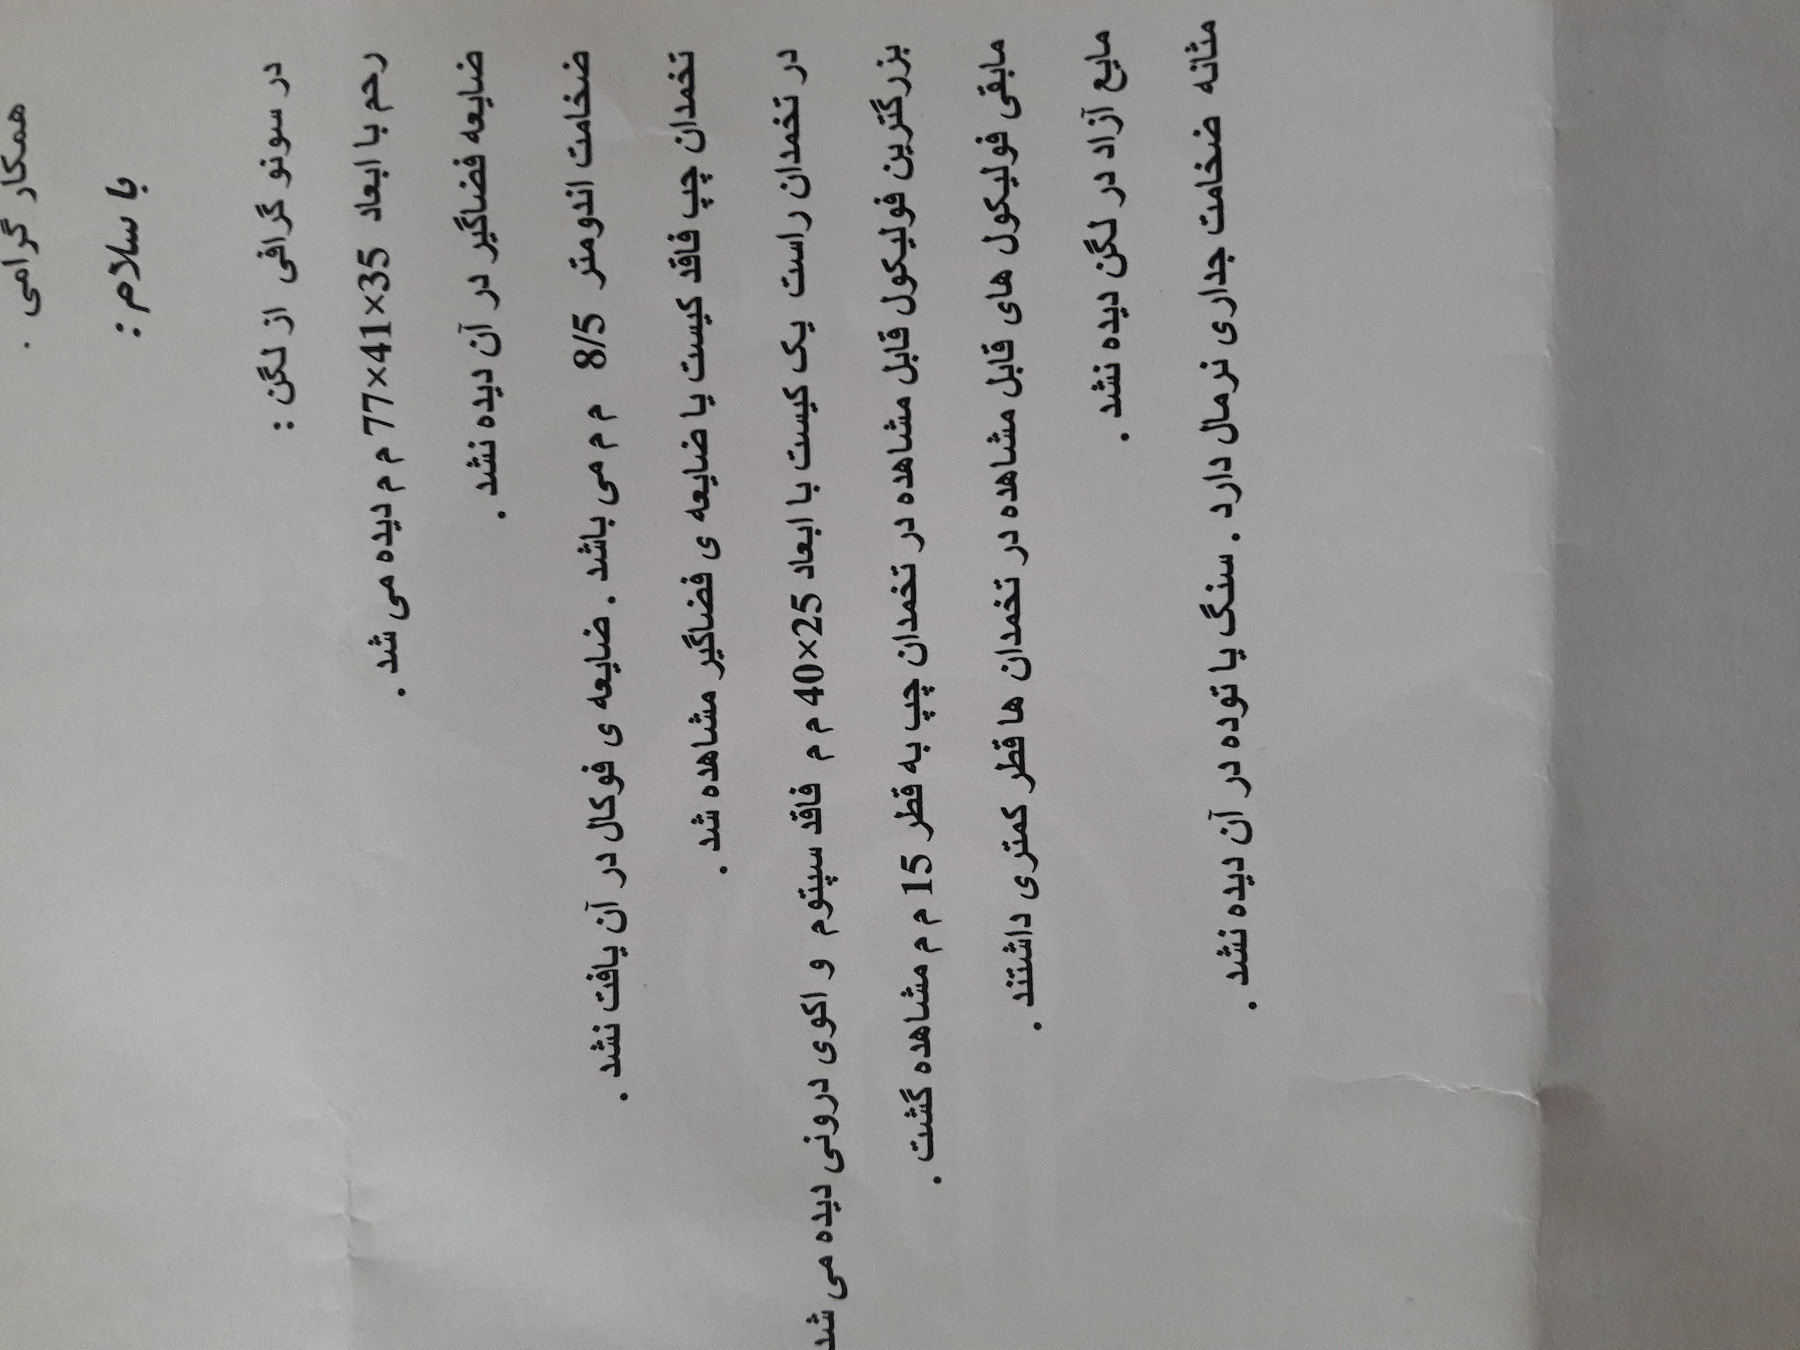 همکار گرامی .
با سلام :
در سونو گرافی از لگن :
رحم با ابعاد 35×41×77 م م دیده می شد .
ضایعه فضاگیر در آن دیده نشد .
ضخامت اندومتر 8/5 م م می باشد . ضایعه ی فوکال در آن یافت نشد .
تخمدان چپ فاقد کیست یا ضایعه ی فضاگیر مشاهده شد .
در تخمدان راست یک کیست با ابعاد 25×40 م م فاقد سپتوم و اکوی درونی دیده می شد
بزرگترین فولیکول قابل مشاهده در تخمدان چپ به قطر 15 م م مشاهده گشت .
مابقی فولیکول های قابل مشاهده در تخمدان ها قطر کمتری داشتند .
مایع آزاد در لگن دیده نشد .
مثانه ضخامت جداری نرمال دارد . سنگ یا توده در آن دیده نشد .